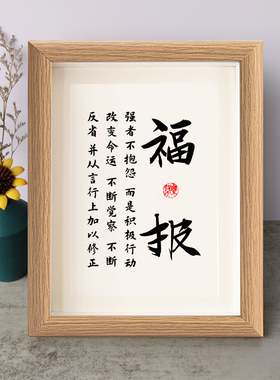 福报
强者不抱怨 而是积极行动
改变命运 不断觉察 不断
反省 并从言行上加以修正